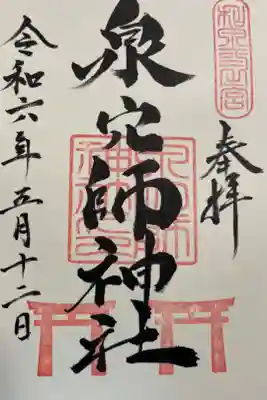 奉拝
泉穴師神社
令和六年五月十二日